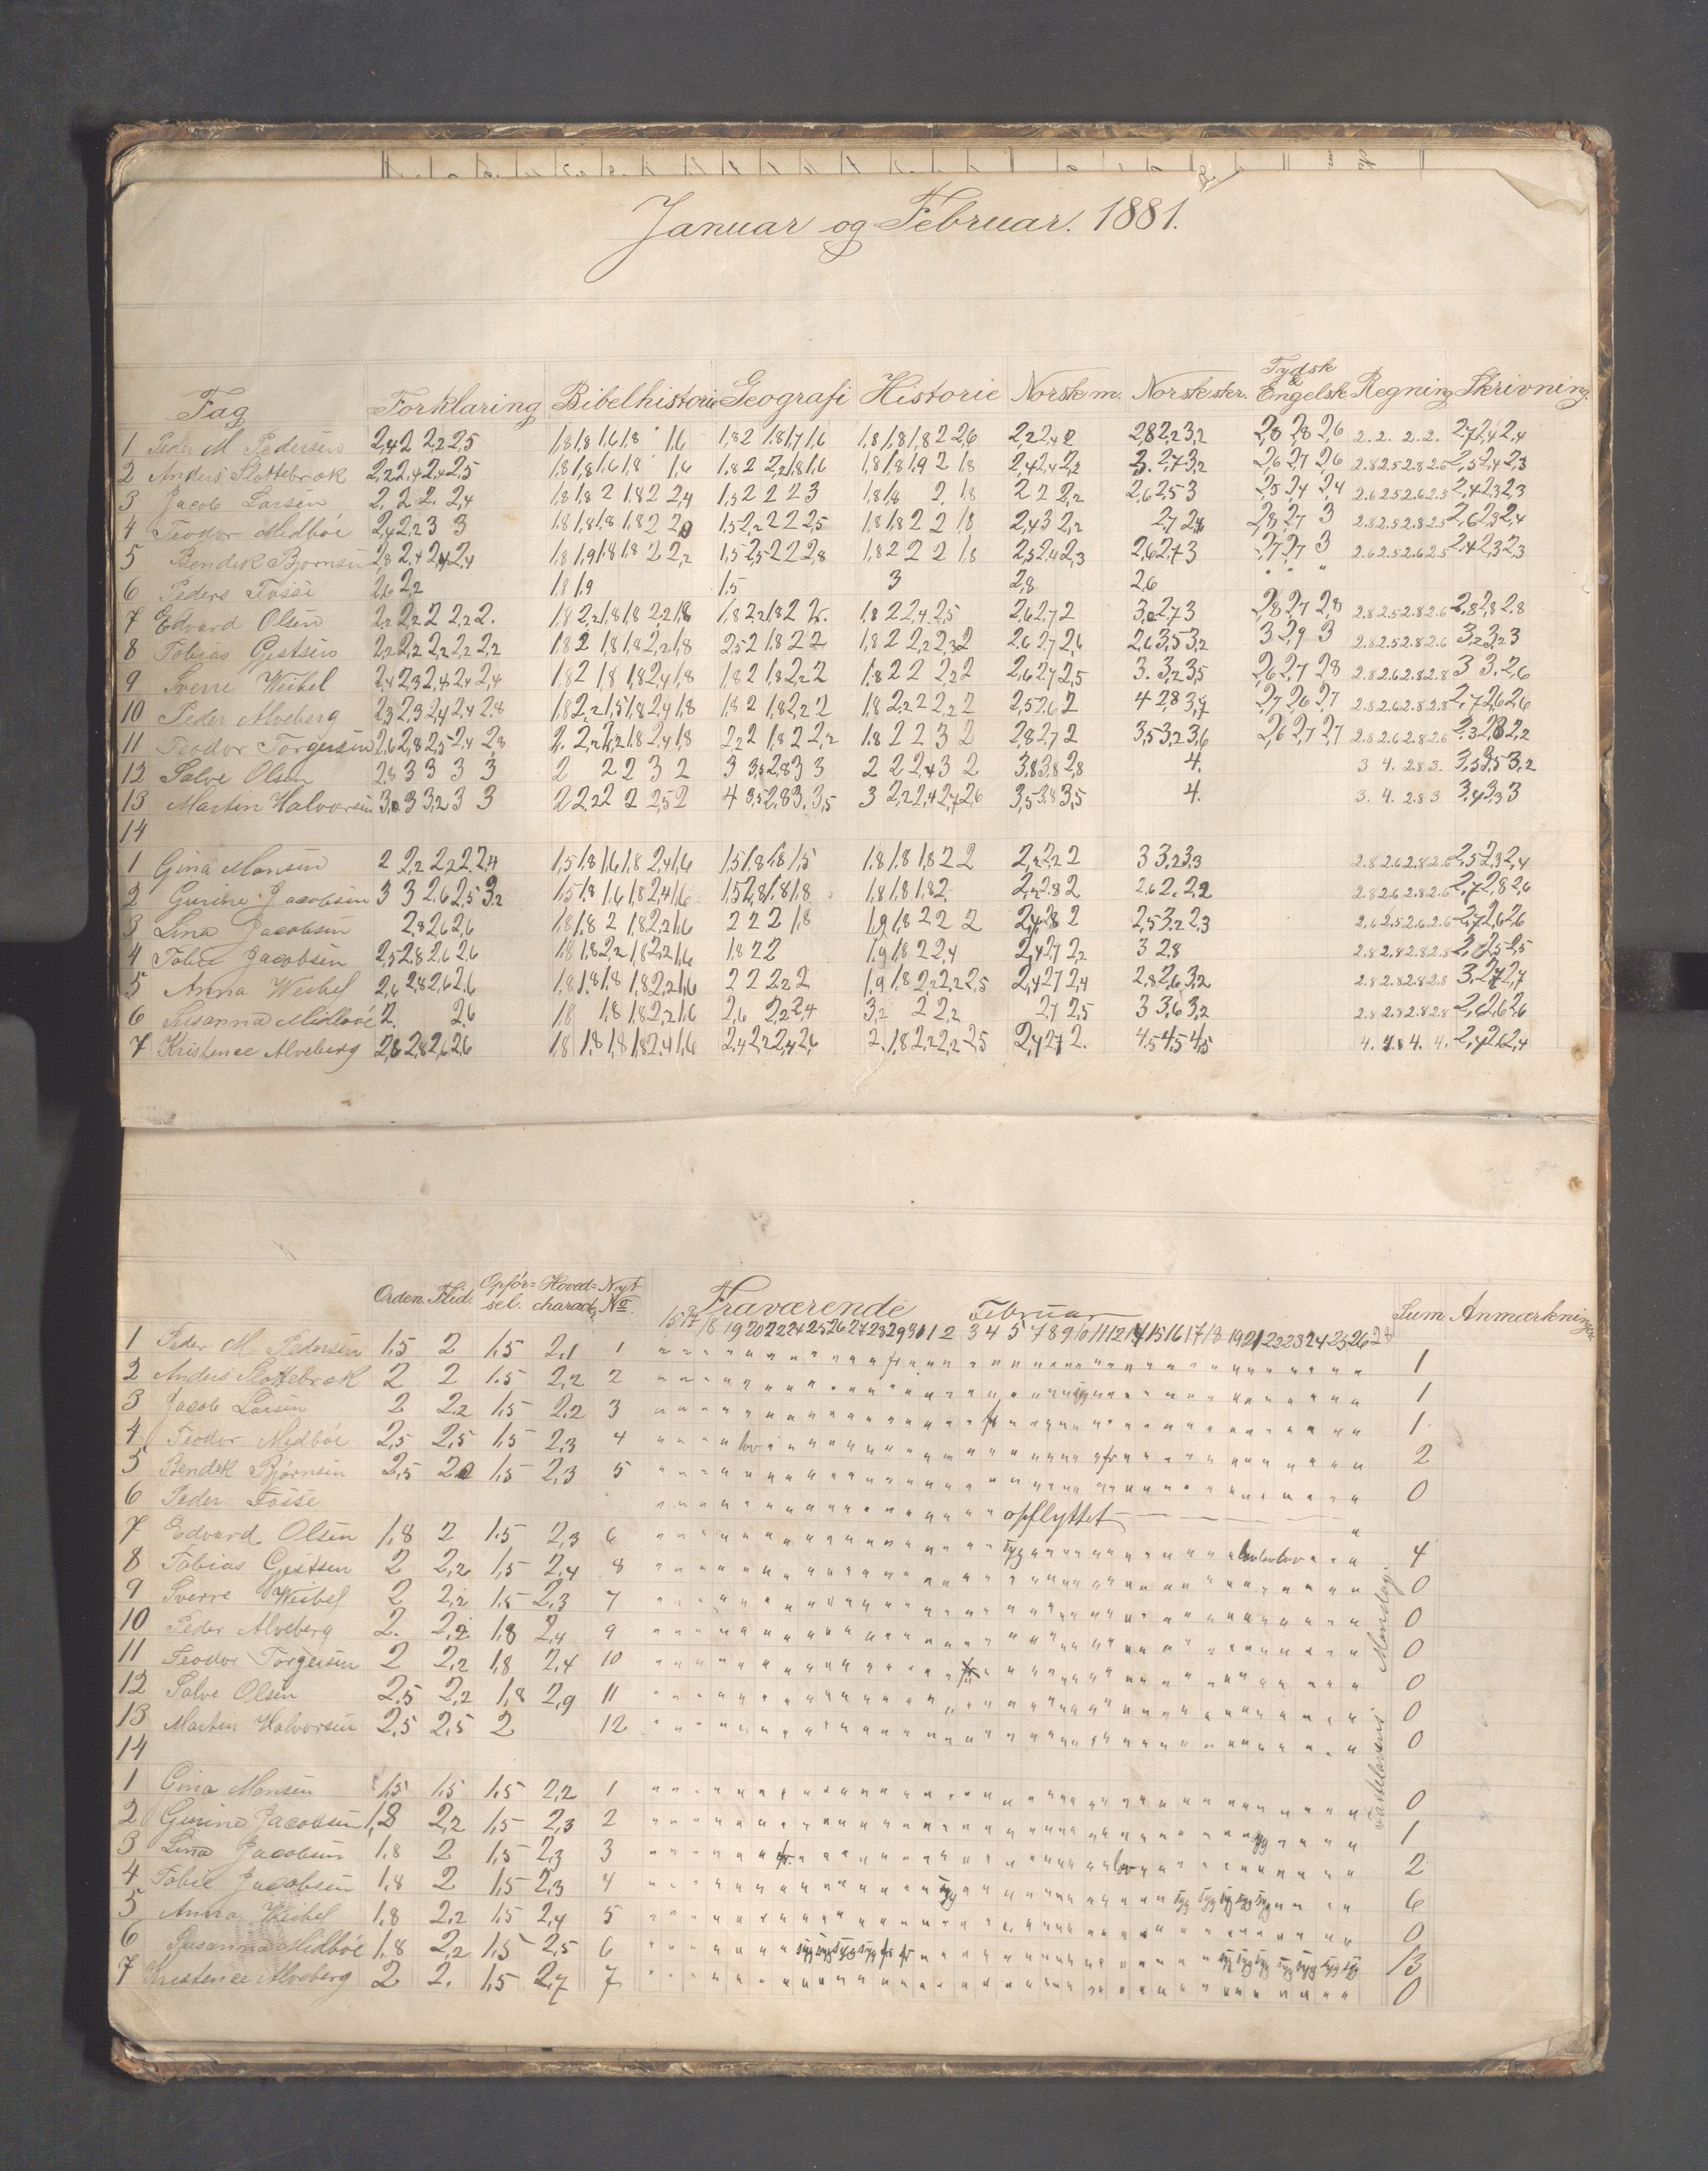 Januar og Februar. 1881.
Fag Forklaring Bibelhistorie Geografi Historie Norsk m. Norsk skr. Tydsk & Engelsk Regning Skrivning.
1 Peder M Pedersen 2,4 2 2,2 2,5 1,8 1,8 1,6 1,8 1,6 1,8 2 1,8 1,7 1,6 1,8 1,8 1,8 2 2,6 2,2 2,4 2 2,8 2,2 3,2 2,8 2,8 2,6 2. 2. 2. 2. 2,7 2,4 2,4
2 Anders Slottebrok 2,2 2,4 2,4 2,5 1,8 1,8 1,6 1,8 1,6 1,8 2 2,2 1,8 1,6 1,8 1,8 1,9 2 1,8 2,4 2,4 2,2 3. 2,7 3,2 2,6 2,7 2,6 2.8 2.5 2.8 2.5 2,5 2,4 2,3
3 Jacob Larsen 2, 2, 2. 2,4 1,8 1,8 2 1,8 2 2,4 1,5 2 2 2 3 1,8 1,8 2, 1,8 2 2 2,2 2,6 2,5 3 2,5 2,4 2,4 2.6 2.5 2.6 2.5 2,4 2,3 2,3
4 Teodor Midböe 2,4 2,2 3 3 1,8 1,8 1,8 1,8 2 1,5 2,2 2 2 2,5 1,8 1,8 2 2 1,8 2,4 3 2,2 2,7 2,8 2,7 3 2.8 2.5 2.8 2.5 2,6 2,3 2,4
5 Bendek Bjornsen 2,8 2,4 2,4 2,4 1,8 1,9 1,8 1,8 2 2,2 1,5 2,5 2 2 2,8 1,8 2 2 2 1,8 2,5 2,4 2,3 2,6 2,7 3 2,7 2,7 3 2.6 2.5 2.6 2.5 2,4 2,3 2,3
6 Peders Fosse 2,6 2,2 1,8 1,9 1,5 3 2,8 2,6 " " "
7 Edvard Olsen 2,2 2,2 2 2,2 2. 1,8 2,2 1,8 1,8 2,2 1,8 1,8 2,2 1,8 2 1,8 2 2,4 2,5 2,6 2,7 2 3, 2,7 3 2,8 2,7 2,8 2.8 2.5 2.8 2.6 2,8 2,8 2,8
8 Tobias Gestsen 2,2 2,2 2,2 2,2 2,2 1,8 2 1,8 1,8 2,2 1,8 2,5 2 1,8 2 2 1,8 2 2,2 2,3 2 2,6 2,7 2,6 2,6 3,5 3,2 3 2,9 3 2.8 2.5 2.8 2.6 3,2 3,2 3
9 Sverre Weibel 2,4 2,3 2,4 2,4 2,4 1,8 2 1,8 1,8 2,4 1,8 1,8 2 1,8 2,2 2 1,8 2 2 2,2 2 2,6 2,7 2,5 3. 3,2 3,5 2,6 2,7 2,8 2.8 2.6 2.8 2.8 3 3. 2,6
10 Peder Alveberg 2,3 2,3 2,4 2,4 2,8 1,8 2,2 1,5 1,8 2,4 1,8 1,8 2 1,8 2,2 2 1,8 2,2 2 2,2 2 2,5 2,6 2 4 2,8 3,4 2,7 2,6 2,7 2.8 2.6 2.8 2.8 2,7 2,6 2,6
11 Teodor Torgersen 2,6 2,8 2,5 2,4 2,8 2. 2,2 1,8 2,4 1,8 2,2 2 1,8 2 2,2 1,8 2 2 3 2 2,8 2,7 2 3,5 3,2 3,6 2,6 2,7 2,7 2.8 2.6 2.8 2.6 2,3 2,8 2,2
12 Salve Olsen 2,8 3 3 3 3 2 2 2 3 2 3 3,5 2,8 3 3 2 2 2,4 3 2 3,8 3,8 2,8 4. 3 4. 2.8 3. 3,5 3,5 3,2
13 Martin Halvorsen 3, 3 3,2 3 3 2 2,2 2 2 2,5 2 4 3,5 2,8 3. 3,5 3 2,2 2,4 2,7 2,6 3,5 3,8 3,5 4. 3. 4. 2.8 3 3,4 3,3 3
14
1 Gina Monsen 2 2,2 2,2 2,2 2,4 1,5 1,8 1,6 1,8 2,4 1,6 1,5 1,8 1,8 1,5 1,8 1,8 1,8 2 2 2,2 2,2 2 3 3,2 3,3 2.8 2.6 2.8 2.6 2,5 2,3 2,4
2 Gurine Jacobsen 3 3 2,6 2,5 3,2 1,5 1,8 1,6 1,8 2,4 1,6 1,5 2,8 1,8 1,8 1,8 1,8 1,8 2. 2,2 2,8 2 2,6 2. 2,2 2.8 2.6 2.8 2.6 2,7 2,8 2,6
3 Lina Jacobsen 2,8 2,6 2,6 1,8 1,8 2 1,8 2,2 1,6 2 2 2 1,8 1,9 1,8 2 2 2 2,4 2,8 2 2,5 3,2 2,3 2.6 2.5 2.6 2.6 2,7 2,6 2,6
4 Tobie Jacobsen 2,5 2,8 2,6 2,6 1,8 1,8 2,2 1,8 2,2 1,6 1,8 2 2 1,9 1,8 2 2,4 2,4 2,7 2,2 3 2,8 2.8 2.8 2.8 2.8 2, 2,5 2,5
5 Anna Weibel 2,6 2,8 2,6 2,6 1,8 1,8 1,8 1,8 2,2 1,6 2 2 2,2 2 1,9 1,8 2,2 2,2 2,5 2,4 2,7 2,4 2,8 2,6 3,2 2.8 2.8 2.8 2.8 3, 2,7 2,7
6 Susanna Midböe 2. 2,6 1,8 1,8 1,8 2,2 1,6 2,6 2,2 2,4 3,2 2 2,2 2,7 2,5 3 3,6 3,2 2.8 2.8 2.8 2.8 2,6 2,6 2,6
7 Kristence Alveberg 2,8 2,8 2,6 2,6 1,8 1,8 1,8 1,8 2,4 1,6 2,4 2,2 2,4 2,6 2. 1,8 2,2 2,2 2,5 2,4 2,7 2. 4,5 4,5 4,5 4. 4.8 4. 4. 2,4 2,6 2,4
Orden. Flid. Opför=sel. Hoved=charac. Nyt No. Fraværende Februar Sum Anmærkninger
15 17 18 19 20 21 22 24 25 26 27 28 29 30 1 2 3 4 5 7 8 9 10 11 12 14 15 16 17 18 19 21 22 23 24 25 26 28
1 Peder M Pedersen 1,5 2 1,5 2,1 1 fr 1
2 Anders Slottebrok 2 2 1.5 2,2 2 syg 1
3 Jacob Larsen 2 2,2 1,5 2,2 3 fr 1
4 Teodor Midböe 2,5 2,5 1,5 2,3 4 lov fr 2
5 Bendek Bjørnsen 2,5 1,5 2,3 5 0
6 Peder Fosse opflyttet
7 Edvard Olsen 1,8 2 1.5 2,3 6 syg lov lov lov 4
8 Tobias Gestsen 2 2,2 1,5 2,4 8 0
9 Sverre Weibel 2 2,2 1.5 2,3 7 0
10 Peder Alveberg 2. 2,2 1,8 2,4 9 0
11 Teodor Torgersen 2 2,2 1,8 2,4 10 0
12 Salve Olsen 2,5 2,2 1,8 2,9 11 0
13 Martin Halvorsen 2,5 2,5 2 12 0
14
1 Gina Monsen 1,5 1,5 1,5 2,2 1 0
2 Gurine Jacobsen 1,8 2,2 1,5 2,3 2 syg 1
3 Lina Jacobsen 1.8 2 1,5 2,3 3 fr. lov 2
4 Tobie Jacobsen 1,8 2 1,5 2,3 4 syg syg syg syg syg syg 6
5 Anna Weibel 1,8 2,2 1,5 2,4 5 0
6 Susanna Midböe 1,8 2,2 1,5 2,5 6 syg syg syg syg fr fr syg syg syg syg syg syg syg 13
7 Kristence Alveberg 2 2. 1.5 2,7 7 0
Fastelavens Mandag.